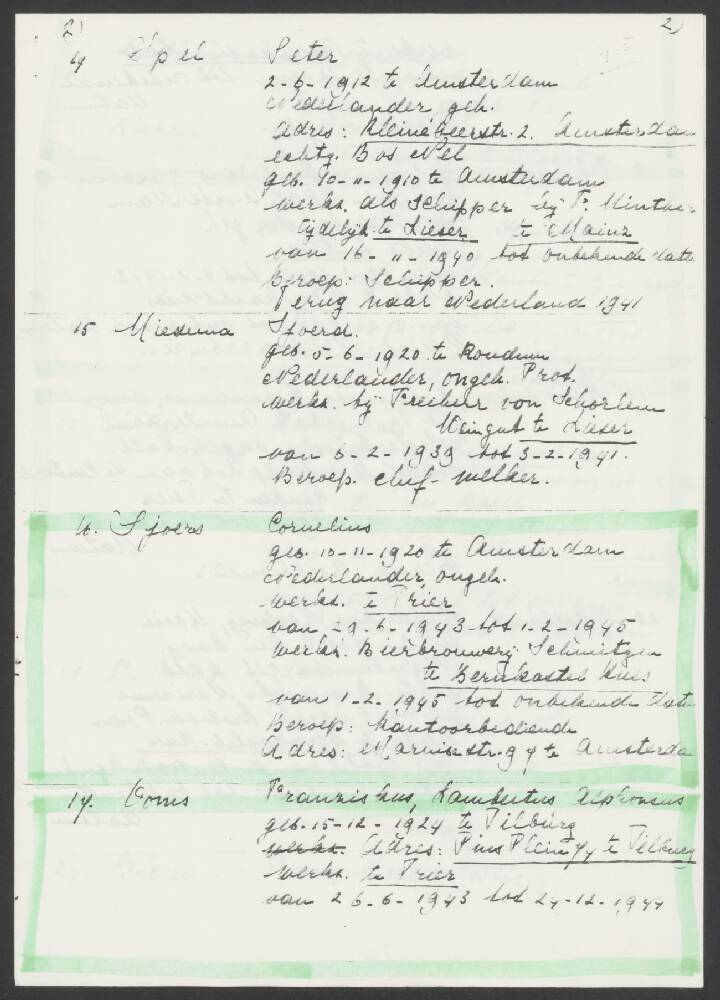 2) 2)
14 Opei Peter
2-6-1912 te Amsterdam
Nederlander, geh.
Adres: Kleine Beerstr. 2. Amsterdam
echtg. Bos Nel
geb. 10-11-1910 te Amsterdam
werkz. als Schipper bij
tijdelijk te Lieser te Mainz
van 16-11-1940 tot onbekende date
Beroep: Schipper.
Terug naar Nederland 1941
15 Miedema Sjoerd.
geb. 5-6-1920 te Koudum
Nederlander, ongeh. Prot.
werkz. bij Freiherr von Schorlem
Weingut te Lieser
van 6-2-1939 tot 3-2-1941.
Beroep. chef-melker.
16. Sjoers Cornelius
geb. 10-11-1920 te Amsterdam
Nederlander, ongeh.
werkz. te Trier
van 29-6-1943 tot 1-2-1945
werkz. Bierbrouwerij Schmitgen
te Bernkastel Kues
van 1-2-1945 tot onbekende date
Beroep: Kantoorbediende
Adres: Marnixstr. 94 te Amsterda
17. Coms Franziskus, Lambertus Alphonsus
geb. 15-12-1924 te Tilburg
werkz. Adres: Pius Plein te Tilburg
werkz. te Trier
van 26-6-1943 tot 24-12-1944